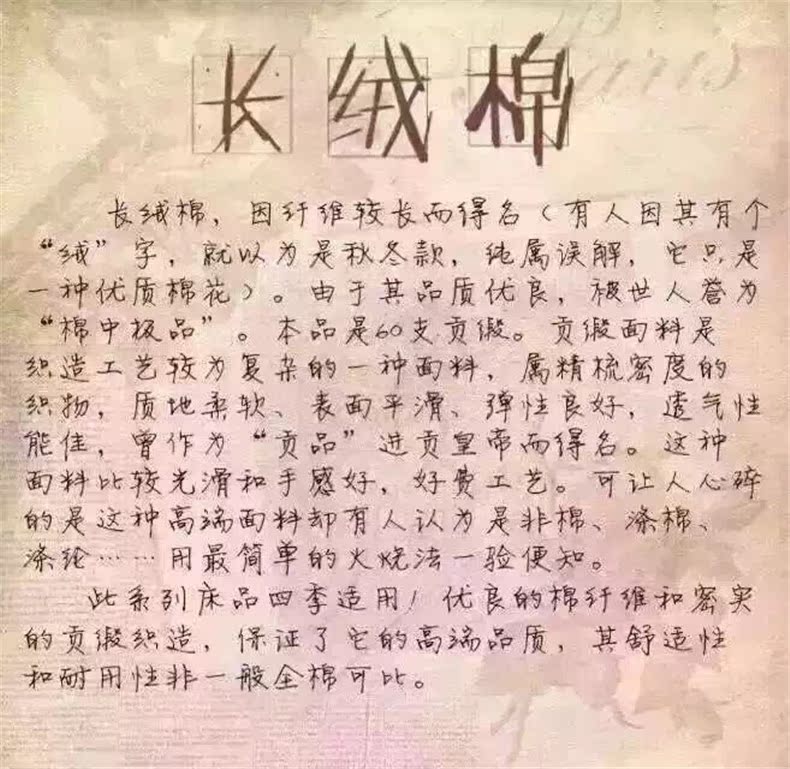 长绒棉
Paris
长绒棉，因纤维较长而得名（有人因其有个
“绒”字，就以为是秋冬款，纯属误解，它只是
一种优质棉花）。由于其品质优良，被世人誉为
“棉中极品”。本品是60支贡缎。贡缎面料是
织造工艺较为复杂的一种面料，属精梳密度的
织物，质地柔软、表面平滑、弹性良好，透气性
能佳，曾作为“贡品”进贡皇帝而得名。这种
面料比较光滑和手感好，好费工艺。可让人心碎
的是这种高端面料却有人认为是非棉、涤棉、
涤纶……用最简单的火烧法一验便知。
此系列床品四季适用！优良的棉纤维和密实
的贡缎织造，保证了它的高端品质，其舒适性
和耐用性非一般全棉可比。